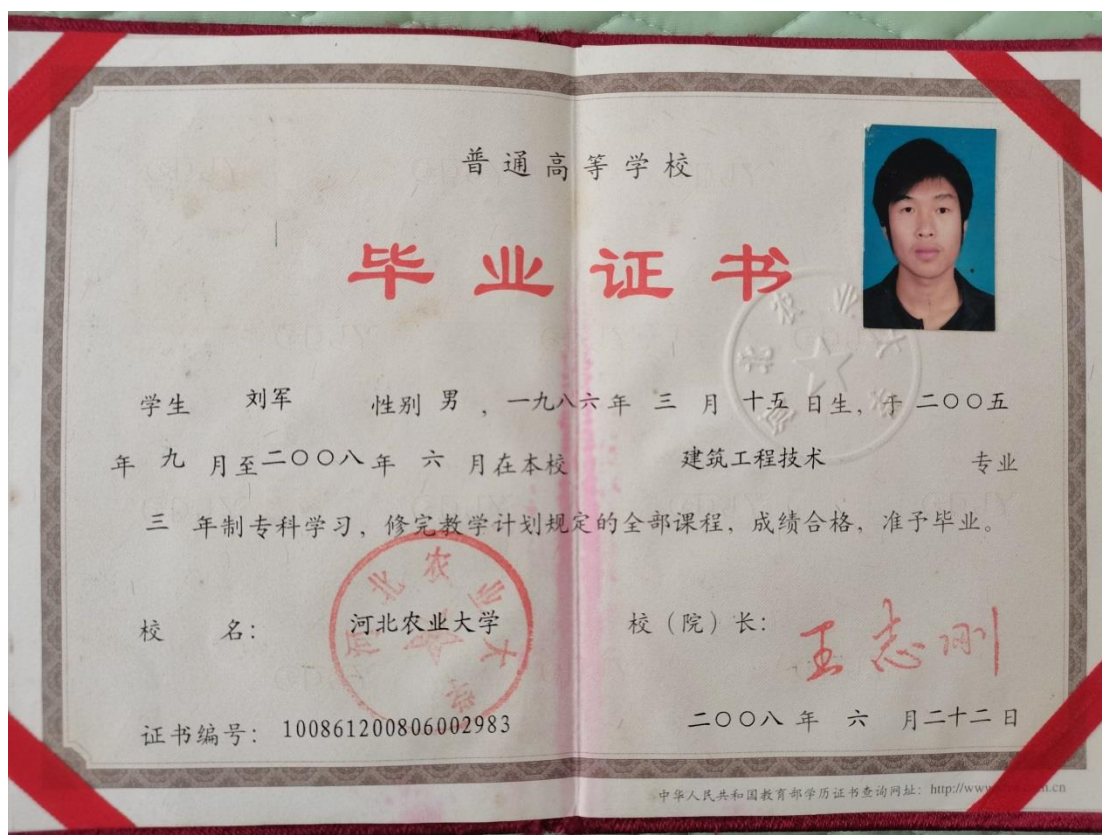 普通高等学校
毕业证书
学生 刘军 性别 男 ,一九八六年 三 月 十五 日生,于 二〇〇五
年 九 月至二〇〇八年 六 月在本校 建筑工程技术 专业
三 年制专科学习,修完教学计划规定的全部课程,成绩合格,准予毕业。
校 名: 河北农业大学 校(院)长: 王志刚
河北农业大学
证书编号: 100861200806002983 二〇〇八 年 六 月二十二 日
中华人民共和国教育部学历证书查询网址: http://www